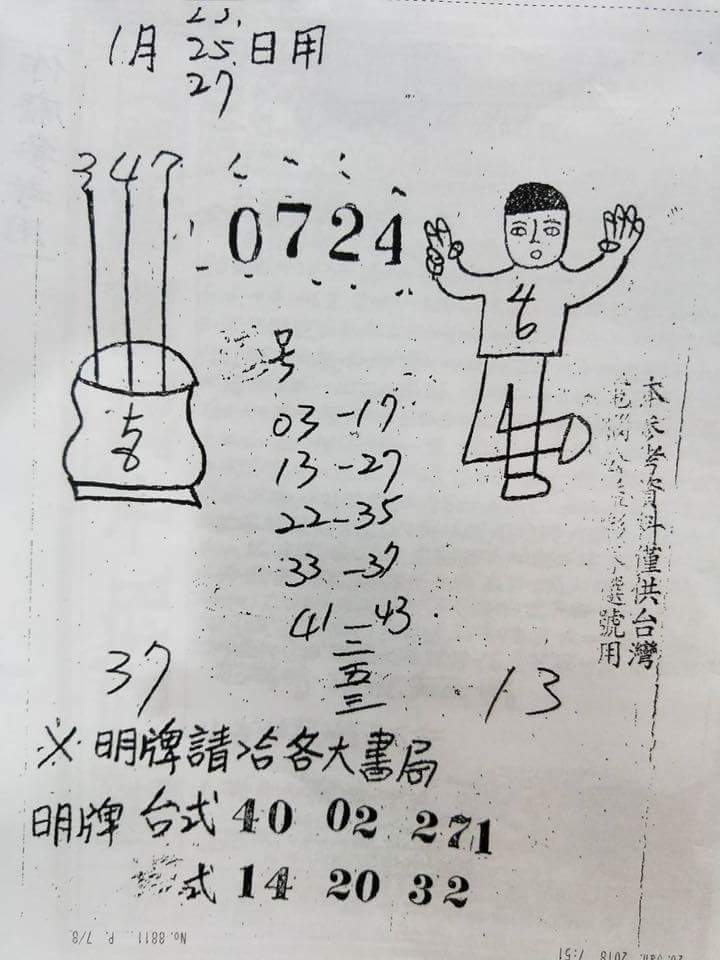 23.
1月 25.日用
27
3 4 7
0724
46
号
03-17
13-27
22-35
33-37
41-43
二
五
三
37
13
本參考資料僅供台灣
選號用
※明牌請洽各大書局
明牌 台式 40 02 271
式 14 20 32
No. 8811 P. 7/8
2018 7:51